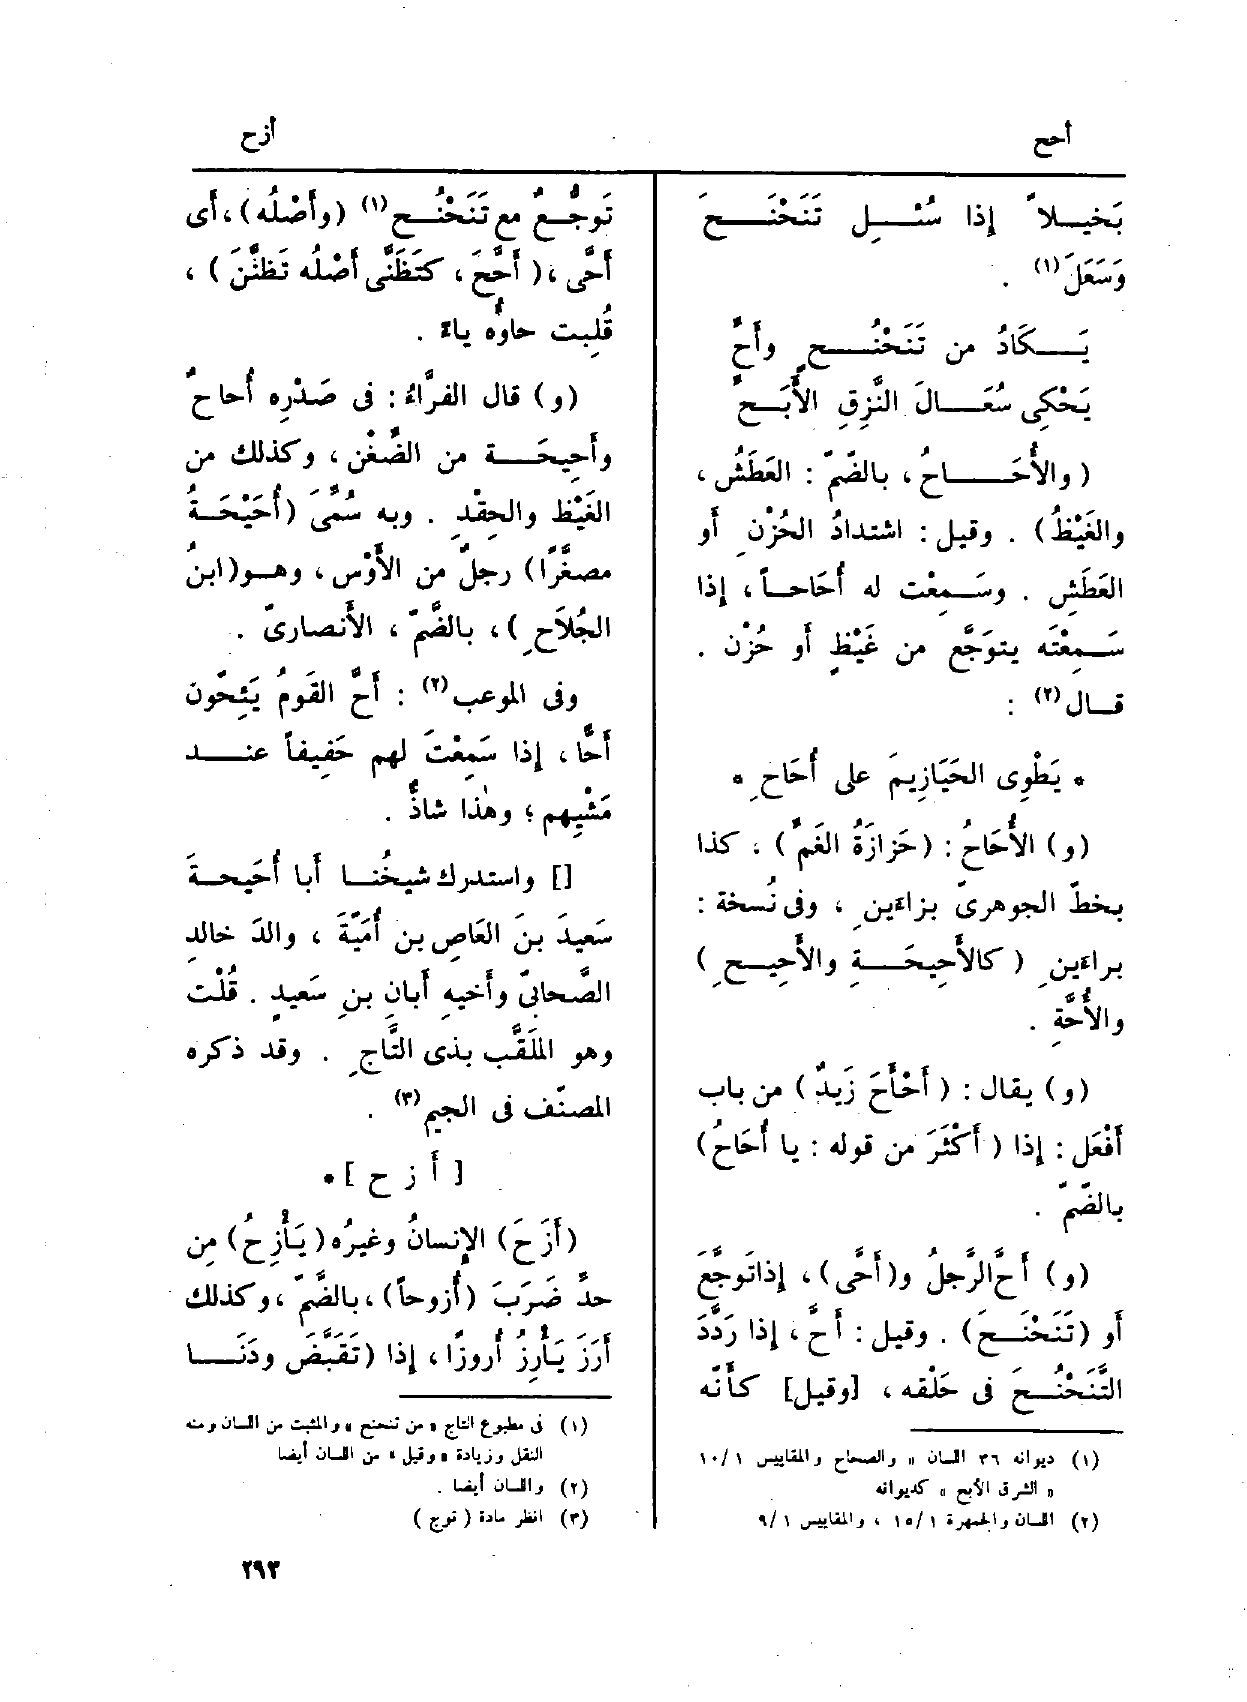 أحح
أزح
بَخيــلاً إذا سُئــِل تَنَحْنَــحَ
وَسَعَلَ(١) .
يَــكَادُ من تَنَحْنُــحٍ وأَحِّ
يَحْكِى سُعَــالَ النَّزِقِ الأَبَــحِّ
( والأُحَــاحُ ، بالضّمّ : العَطَشُ ،
والغَيْظُ ) . وقيل : اشتدادُ الحُزْنِ أو
العَطَشِ . وسَــمِعْت له أُحَاحــاً ، إذا
سَــمِعْتَه يتوَجَّع من غَيْظٍ أو حُزْن .
قــال(٢) :
* يَطْوِى الحَيَازِيمَ على أُحَاحِ *
(و) الأُحَاحُ : (حَزازَةُ الغَمِّ ) . كذا
بخطّ الجوهرىّ بزاءَينِ ، وفى نُسخة :
براءَينِ ( كالأَحِيحَــةِ والأَحِيــحِ )
والأُحَّةِ .
(و) يقال : ( أَحْأَحَ زَيدٌ ) من باب
أَفْعَل : إذا ( أَكْثَرَ من قوله : يا أُحَاحُ )
بالضّمّ .
(و) أَحَّ الرَّجلُ و(أَحَّى) ، إذا تَوجَّعَ
أو (تَنَحْنَــحَ) . وقيل : أَحَّ ، إذا رَدَّدَ
التَّنَحْنُــحَ فى حَلْقه ، [وقيل] كأَنّه
(١) ديوانه ٣٦ اللسان « والصحاح والمقاييس ١٠/١
« الشرق الأبح » كديوانه
(٢) اللسان والجمهرة ١٥/١ ، والمقاييس ٩/١
تَوجُّــعٌ مع تَنَحْنُــح(١) (وأَصْلُه) ، أى
أَحَّى ، ( أَحَّحَ ، كتَظَنَّى أَصْلُه تَظنَّنَ ) ،
قُلِبت حاؤُه ياءً .
(و) قال الفرّاءُ : فى صَدْرِه أُحاحٌ
وأَحِيحَــة من الضِّغْن ، وكذلك من
الغَيْظ والحِقْدِ . وبه سُمِّىَ (أُحَيْحَــةُ
مصغَّرًا) رجلٌ من الأَوْس ، وهــو(ابنُ
الجُلاَحِ ) ، بالضَّمّ ، الأَنصارىّ .
وفى الموعب(٢) : أَحَّ القَومُ يَئِحّون
أَحًّا ، إذا سَمِعْتَ لهم حَفِيفاً عنــد
مَشْيِهم ؛ وهٰذا شاذٌّ .
[] واستدرك شيخُنــا أَبا أُحَيحــةَ
سَعيدَ بنَ العَاصِ بن أُمَيّةَ ، والدَ خالدٍ
الصَّحابىّ وأَخيهِ أَبانِ بنِ سَعيدٍ . قُلْت
وهو المَلقَّب بذى التَّاجِ . وقد ذكره
المصنّف فى الجيم(٣) .
[ أ ز ح ] *
(أَزَحَ) الإِنسانُ وغيرُه (يَأْزِحُ) مِن
حدِّ ضَرَبَ (أُزوحاً) ، بالضّمّ ، وكذلك
أَرَزَ يَأْرِزُ أُروزًا ، إذا (تَقَبَّضَ ودَنَــا
(١) فى مطبوع التاج « من تنحنح » والمثبت من اللسان ومنه
النقل وزيادة « وقيل » من اللسان أيضا
(٢) واللسان أيضا .
(٣) انظر مادة ( توج )
٢٩٣